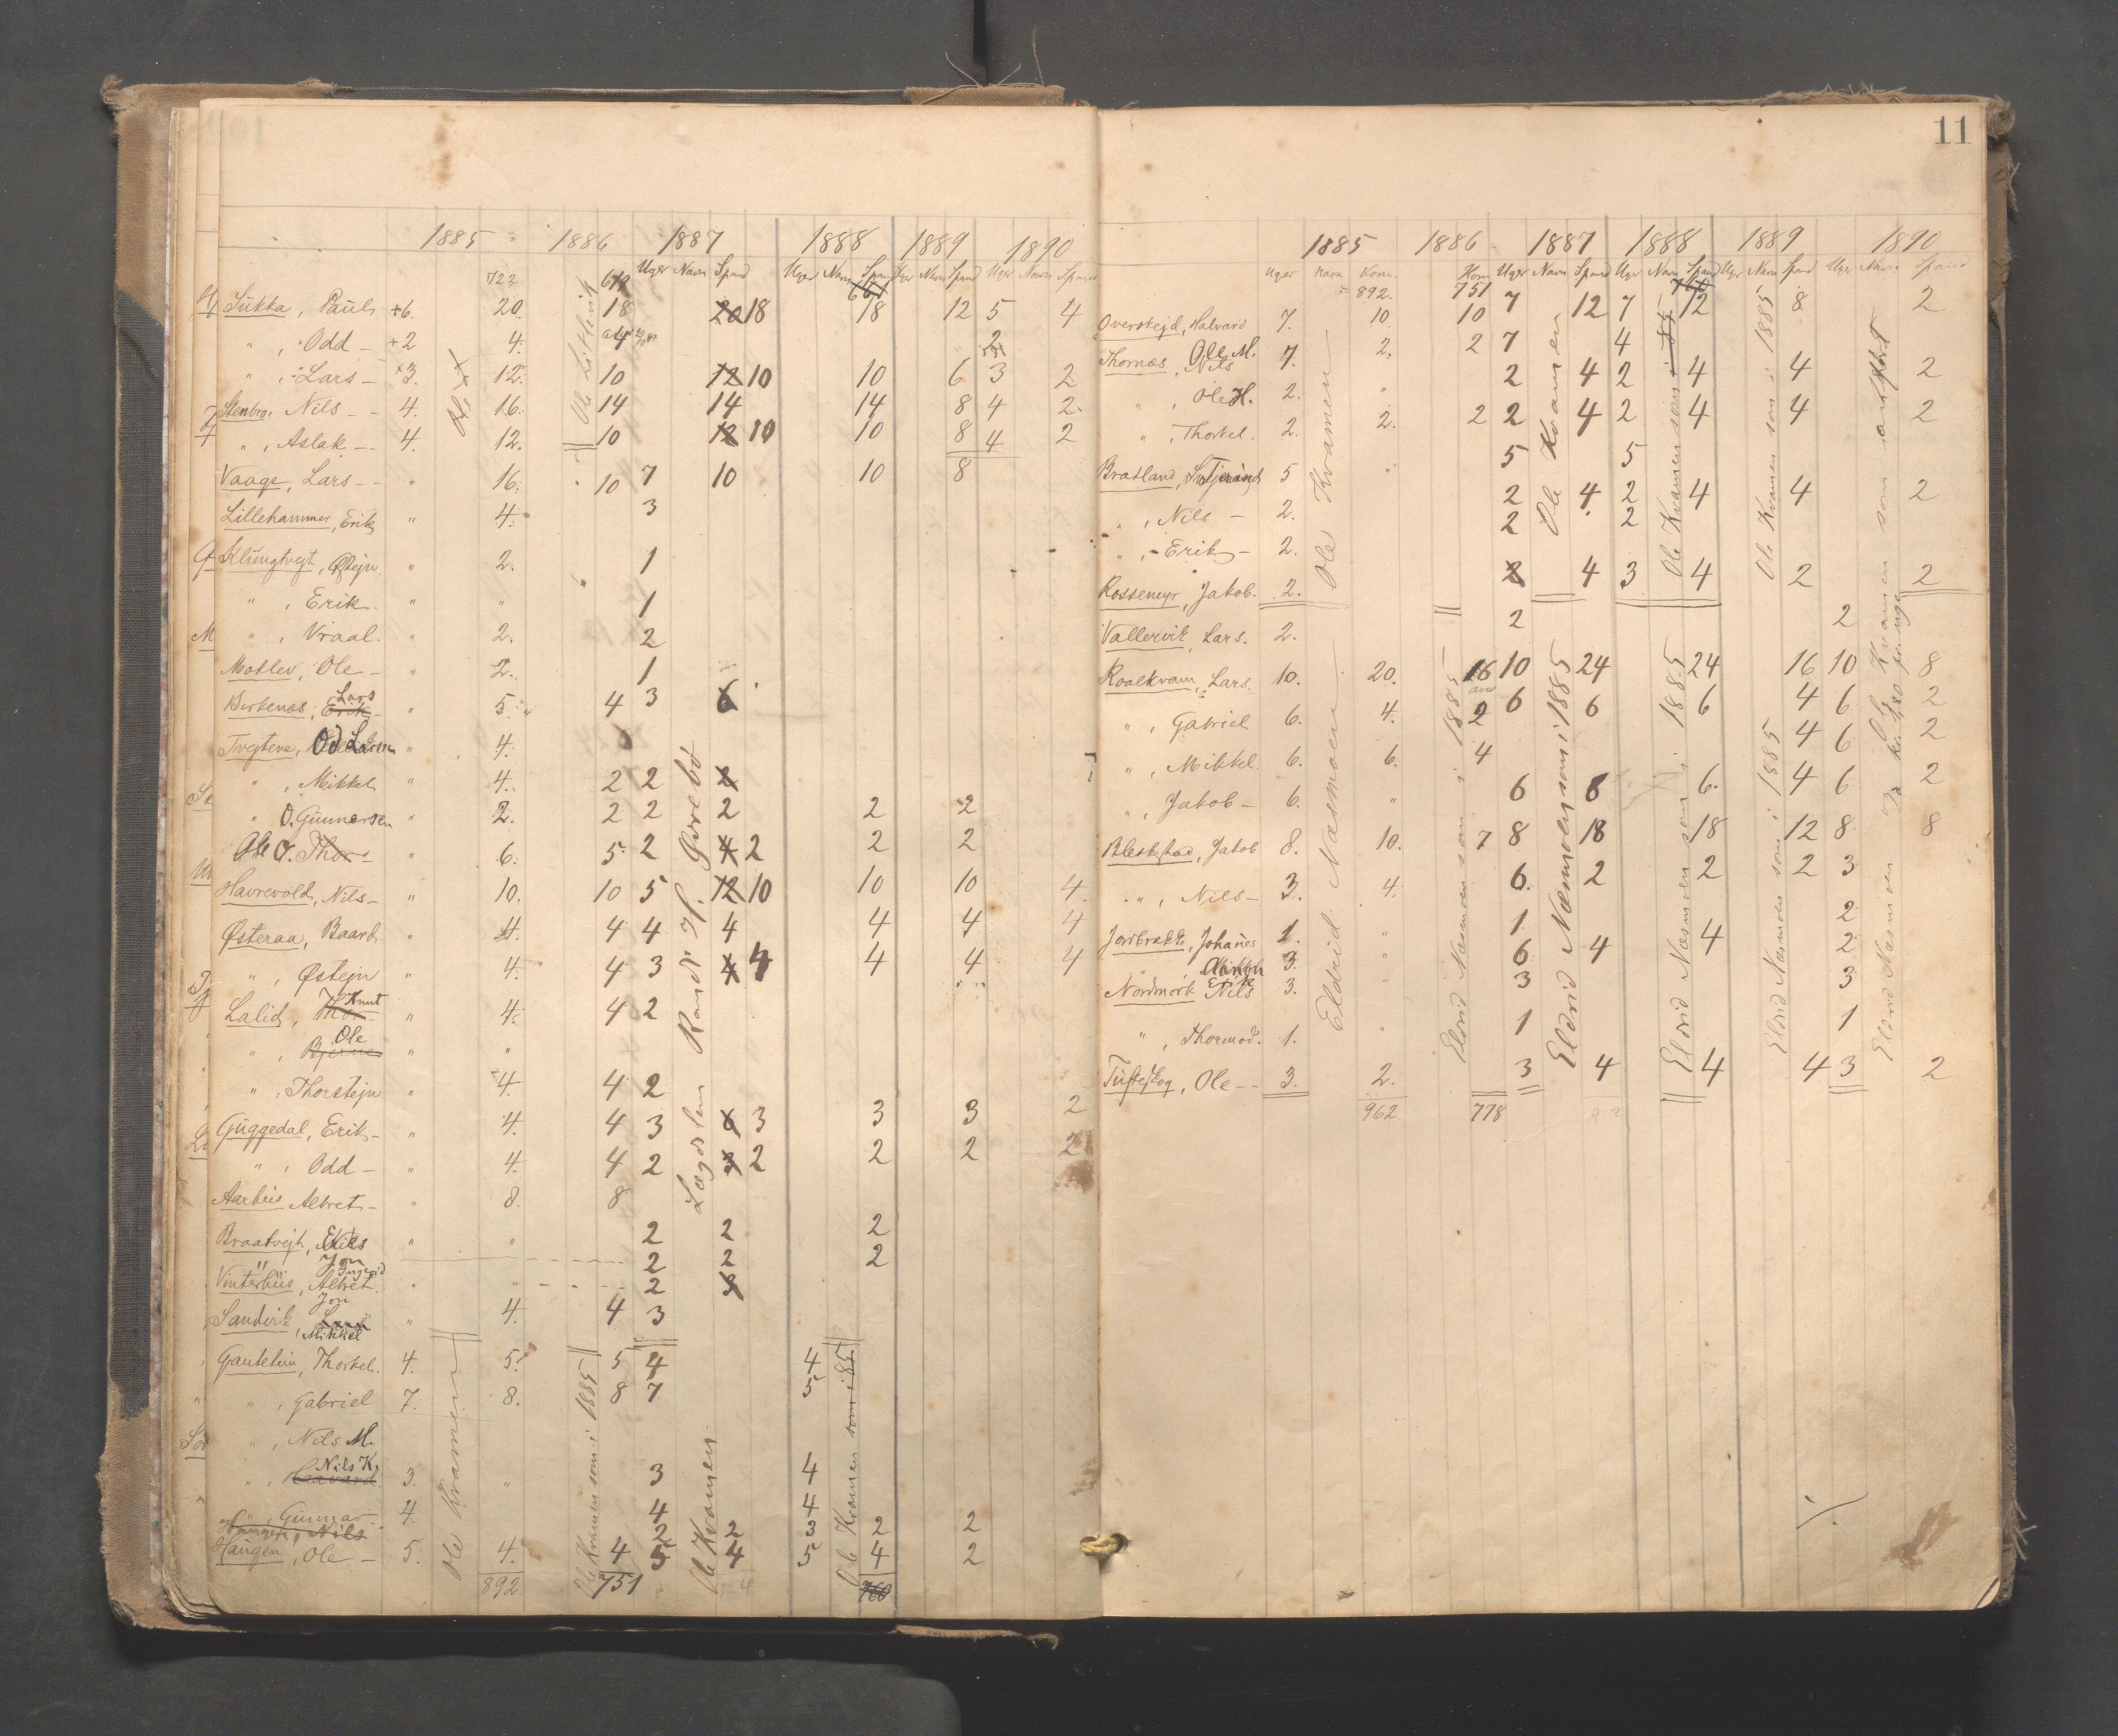 1885 1886 1887 1888 1889 1890
722 Uger Navn Spand Uger Navn Uger Navn Spand Uger Navn Spand
Sukka, Pauls +6. 20. 18 20 18 18 12 5 4
" , Odd - +2 4. 4 2
" , Lars - 3. 12. 10 12 10 10 6 3 2
Stenbro, Nils - - 4. 16. 14 14 14 8 4 2.
" , Aslak - - 4. 12. 10 12 10 10 8 4 2
Vaage, Lars - - " 16. 10 7 10 10 8
Lillehammer, Erik " 4. 3
Klungtvejt, Østejn " 2. 1
" , Erik. " " 1
" , Vraal. " 2. 2
Motlev, Ole - " 2. 1
Lars
Birkenæs, Erik - " 5. 4 3 6
Tvejtene, Od Larsen " 4.
" , Mikkel " 4. 2 2 2
" O. Gunnersen " 2. 2 2 2 2 2
Ole O. Thor - " 6. 5 2 4 2 2 2
Havrevold, Nils - " 10. 10 5 12 10 10 10 4.
Østeraa, Baard " 4. 4 4 4 4 4 4
" , Østejn " 4. 4 3 4 4 4 4 4
Knut
Lalid, Thor - " 4. 4 2
Ole
" , Bjerne " "
" , Thorstejn " 4. 4 2
Guggedal, Erik - " 4. 4 3 6 3 3 3 2
" , Odd - " 4. 4 2 3 2 2 2 2
Aarhus Albret - " 8. 8
Braatvejt, " " 2 2 2
" Jon 2 2 2
Ingerid
Vinterhus, Albret. " " 2 3
Jon
Sandvik, " 4. 4 3
, Mikkel
Gautetun, Thorkel. 4. 5. 5 4 4
" , Gabriel 7. 8. 8 7 5
" , Nils M.
Nils K.
" , Haavard. 3. " 3 4
" , Gunnar - 4. 4 4
Haugen, Nils 2 2 3 2 2
Haugen, Ole - 5. 4. 4 5 4 5 4 2
892. 751 760
Ole Litlevik
Randi H. Gurebo
Lægdslem
Ole Kvamen
Ole Kvamen som i 1885
Ole Kvamen
Ole Kvamen som i 85
11
1885 1886 1887 1888 1889 1890
Uger Navn Korn. Korn Uger Navn Spand Uger Navn Spand Uger Navn Spand Uger Navn Spand
892. 751 760
Overstejd, Halvard 7. 10. 10 7 12 7 12 8 2
Ole M.
Thornæs, Nils 7. 2. 2 7 4
" , Ole H. 2. " 2 4 2 4 4 2
" , Thorkel. 2. 2. 2 2 4 2 4 4 2
Bratland, 5 " 5 5
" , Nils - 2. 2 4 2 4 4 2
" , - Erik - 2. 2 2
Rossemyr, Jakob. 2. 2 4 3 4 2 2
Vallervik, Lars. 2. 2 2
Roalkvam, Lars. 10. 20. 16 10 24 24 16 10 8
" , Gabriel 6. 4. 2 6 6 6 4 6 2
" , Mikkel. 6. 6. 4 4 6 2
" , Jakob - 6. " 6 8 6. 4 6 2
Bleskestad, Jakob 8. 10. 7 8 18 18 12 8 8
" , Nils - 3. 4. 6. 2 2 2 3
Jordbrække, Johanes 1. " 1 2
3. " 6 4 4 2
Erik
Nordmork Nils 3. " 3 3
" , Thormod. 1. " 1 1
Tufteskog, Ole - - 3. 2. 3 4 4 4 3 2
962. 778
Ole Kvamen
Ole Kvamen
Ole Kvamen som i 85
Ole Kvamen som i 1885
Eldrid Næsmoen
Eldrid Næsmoen som i 1885
Eldrid Næsmoen som i 1885
Eldrid Næsmoen som i 1885
Eldrid Næsmoen som i 1885
Eldrid Næsmoen